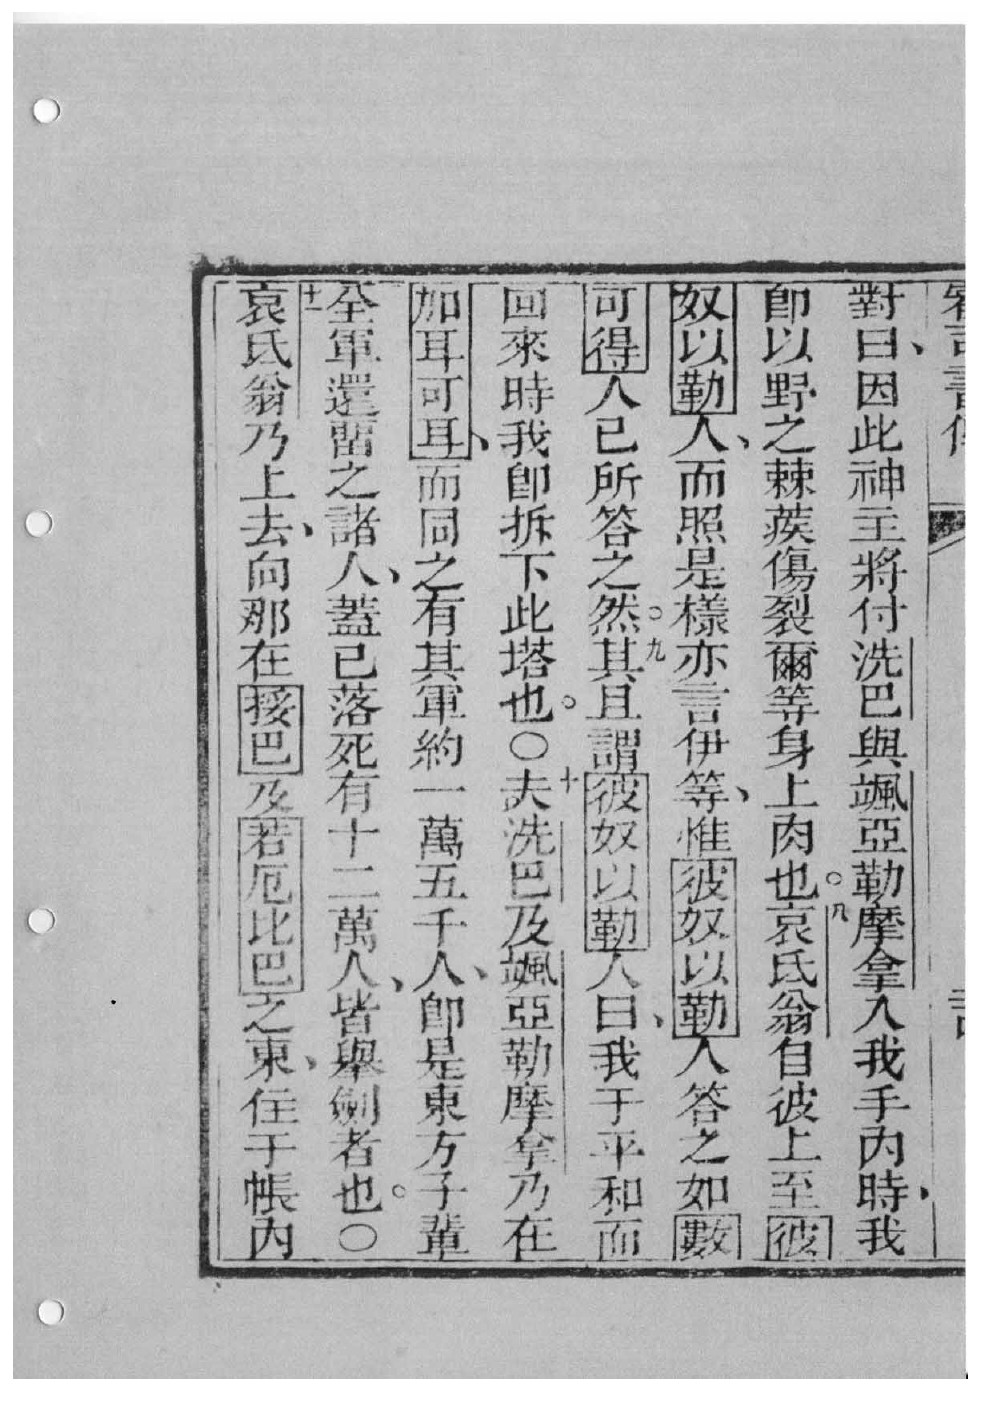 審司書傳
對曰、因此神主將付洗巴與颯亞勒摩拿入我手內時、我
卽以野之棘蒺傷裂爾等身上肉也。八哀氏翁自彼上至彼
奴以勒人、而照是樣亦言伊等、惟彼奴以勒人答之如數
可得人已所答之然。九其且謂彼奴以勒人曰、我于平和而
回來時我卽拆下此塔也。○十夫洗巴及颯亞勒摩拿乃在
加耳可耳、而同之有其軍約一萬五千人、卽是東方子輩
全軍還畱之諸人、蓋已落死有十二萬人、皆舉劍者也。○
十一哀氏翁乃上去、向那在挼巴及若厄比巴之東、住于帳內